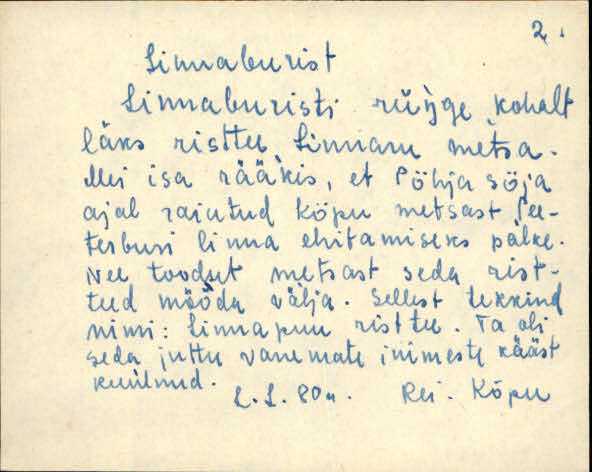 2.
Linnaburist
Linnaburisti rüüge kohalt
läks risttee Linnaru metsa.
Mei isa rääkis, et Põhja sõja
ajal raiutud Kõpu metsast Pee-
terburi linna ehitamiseks palke.
Nee toodset metsast seda rist-
teed mööda välja. Sellest tekkind
nimi: linnapuu risttee. Ta oli
seda juttu vanemate inimeste kääst
kuulnud.
L.L. 80a. Rei. Kõpu